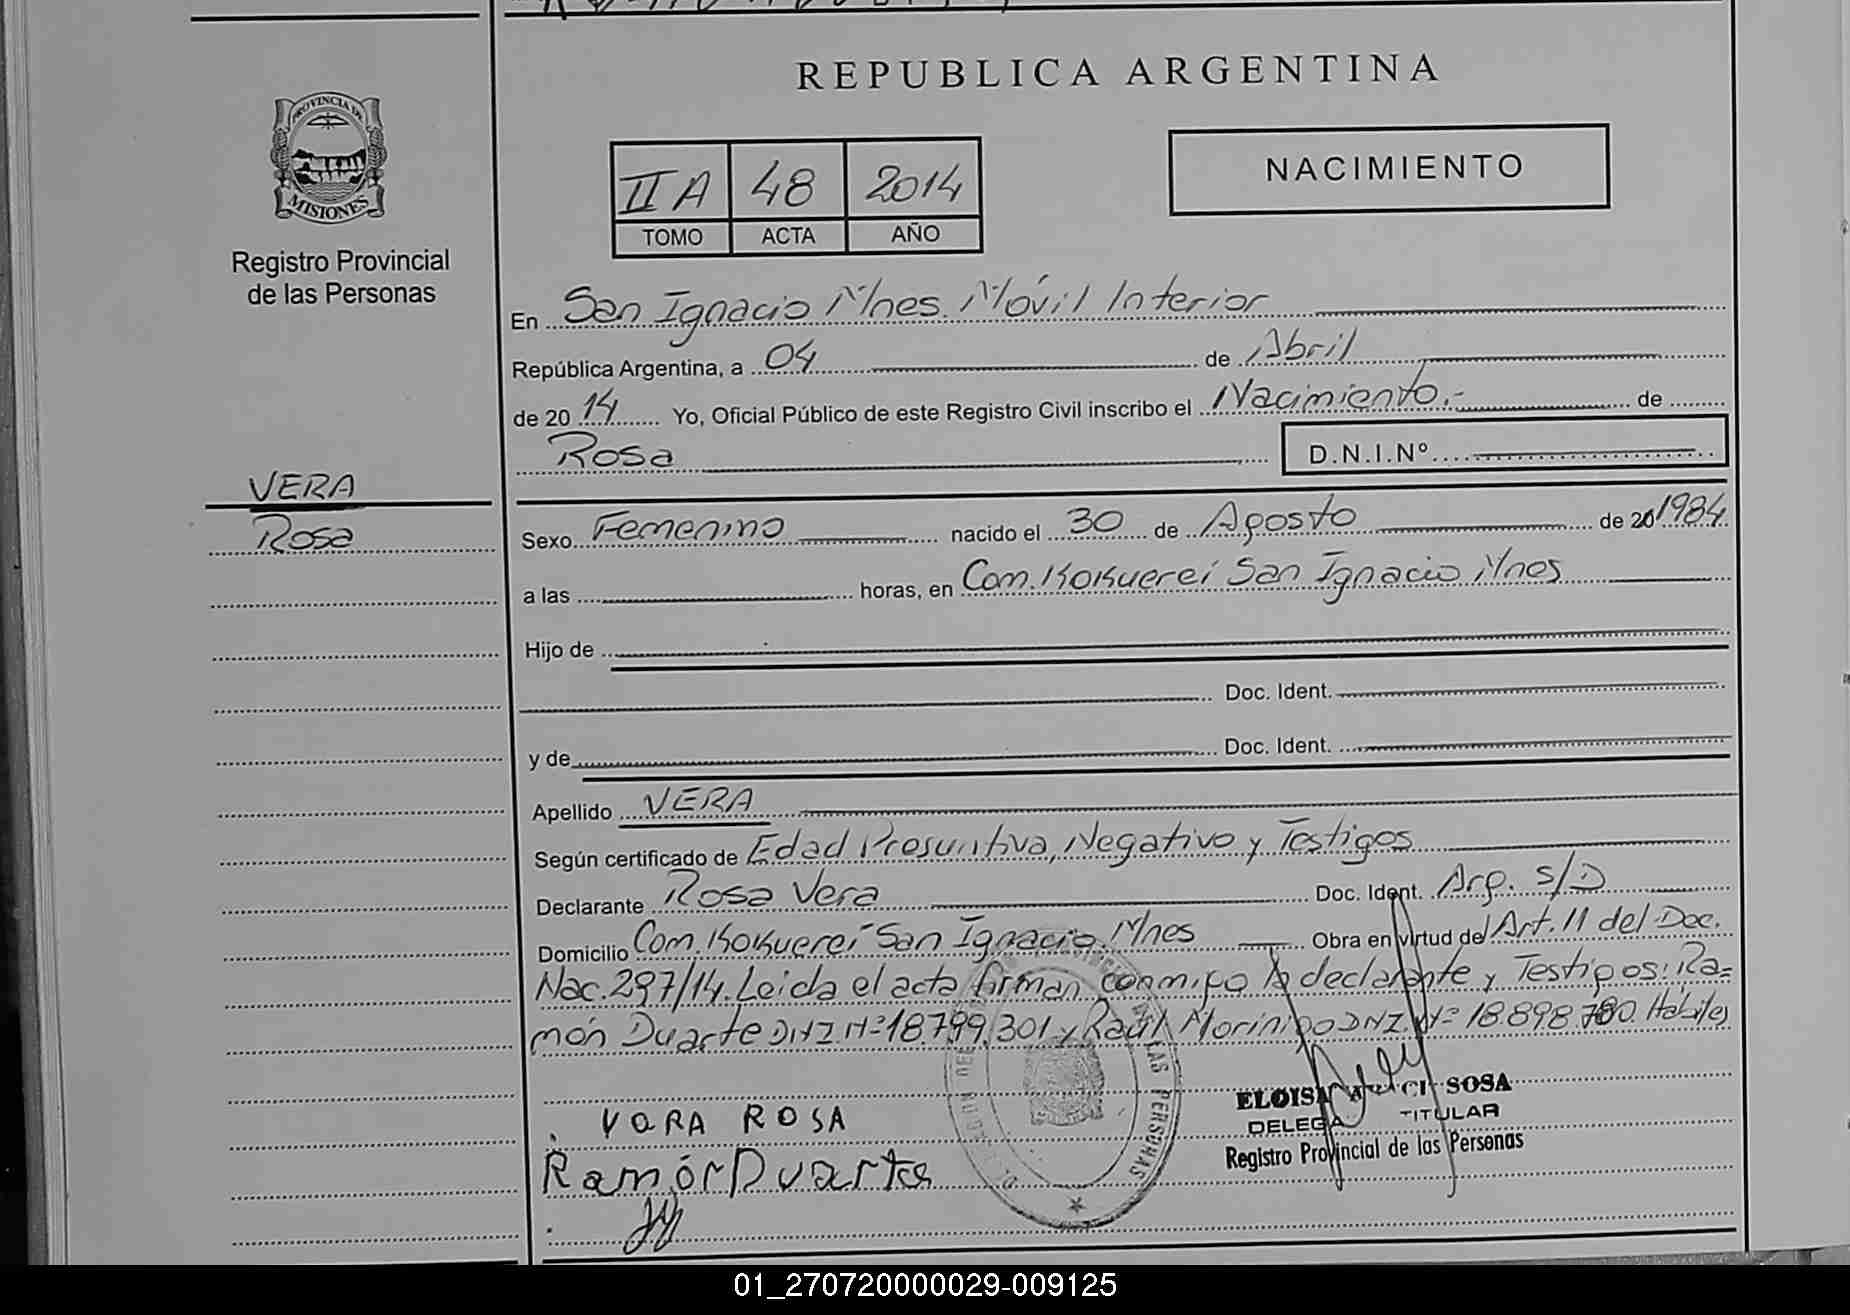 REPUBLICA ARGENTINA
PROVINCIA DE
MISIONES
Registro Provincial
de las Personas
II A 48 2014
TOMO ACTA AÑO
NACIMIENTO
En San Ignacio Mnes. Móvil Interior
República Argentina, a 04 de Abril
de 20 14 Yo, Oficial Público de este Registro Civil inscribo el Nacimiento.- de
Rosa D.N.I.Nº
VERA
Rosa
Sexo Femenino nacido el 30 de Agosto de 20 1984
a las horas, en Com. Kokuereí San Ignacio Mnes
Hijo de
Doc. Ident.
y de Doc. Ident.
Apellido VERA
Según certificado de Edad Presuntiva, Negativo y Testigos
Declarante Rosa Vera Doc. Ident. Arg. S/D
Domicilio Com. Kokuereí San Ignacio Mnes Obra en virtud del Art. 11 del Dec.
Nac. 297/14. Leida el acta firman conmigo la declarante y Testigos: Ra=
món Duarte DNI Nº 18.799.301 y Raúl Morinigo DNI Nº 18.898.780. Habiles
VERA ROSA
Ramón Duarte
LAS PERSONAS
ELOISA SOSA
DELEGA TITULAR
Registro Provincial de las Personas
01_270720000029-009125